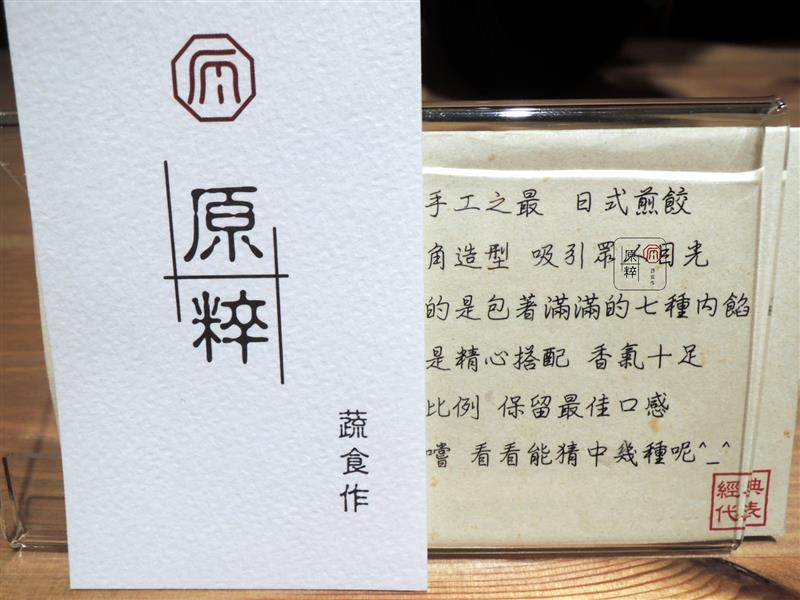 原
粹
蔬食作
手工之最 日式煎餃
角造型 吸引眾人目光
的是包著滿滿的七種內餡
是精心搭配 香氣十足
比例 保留最佳口感
嚐 看看能猜中幾種呢^_^
經典
代表
原粹
蔬食作